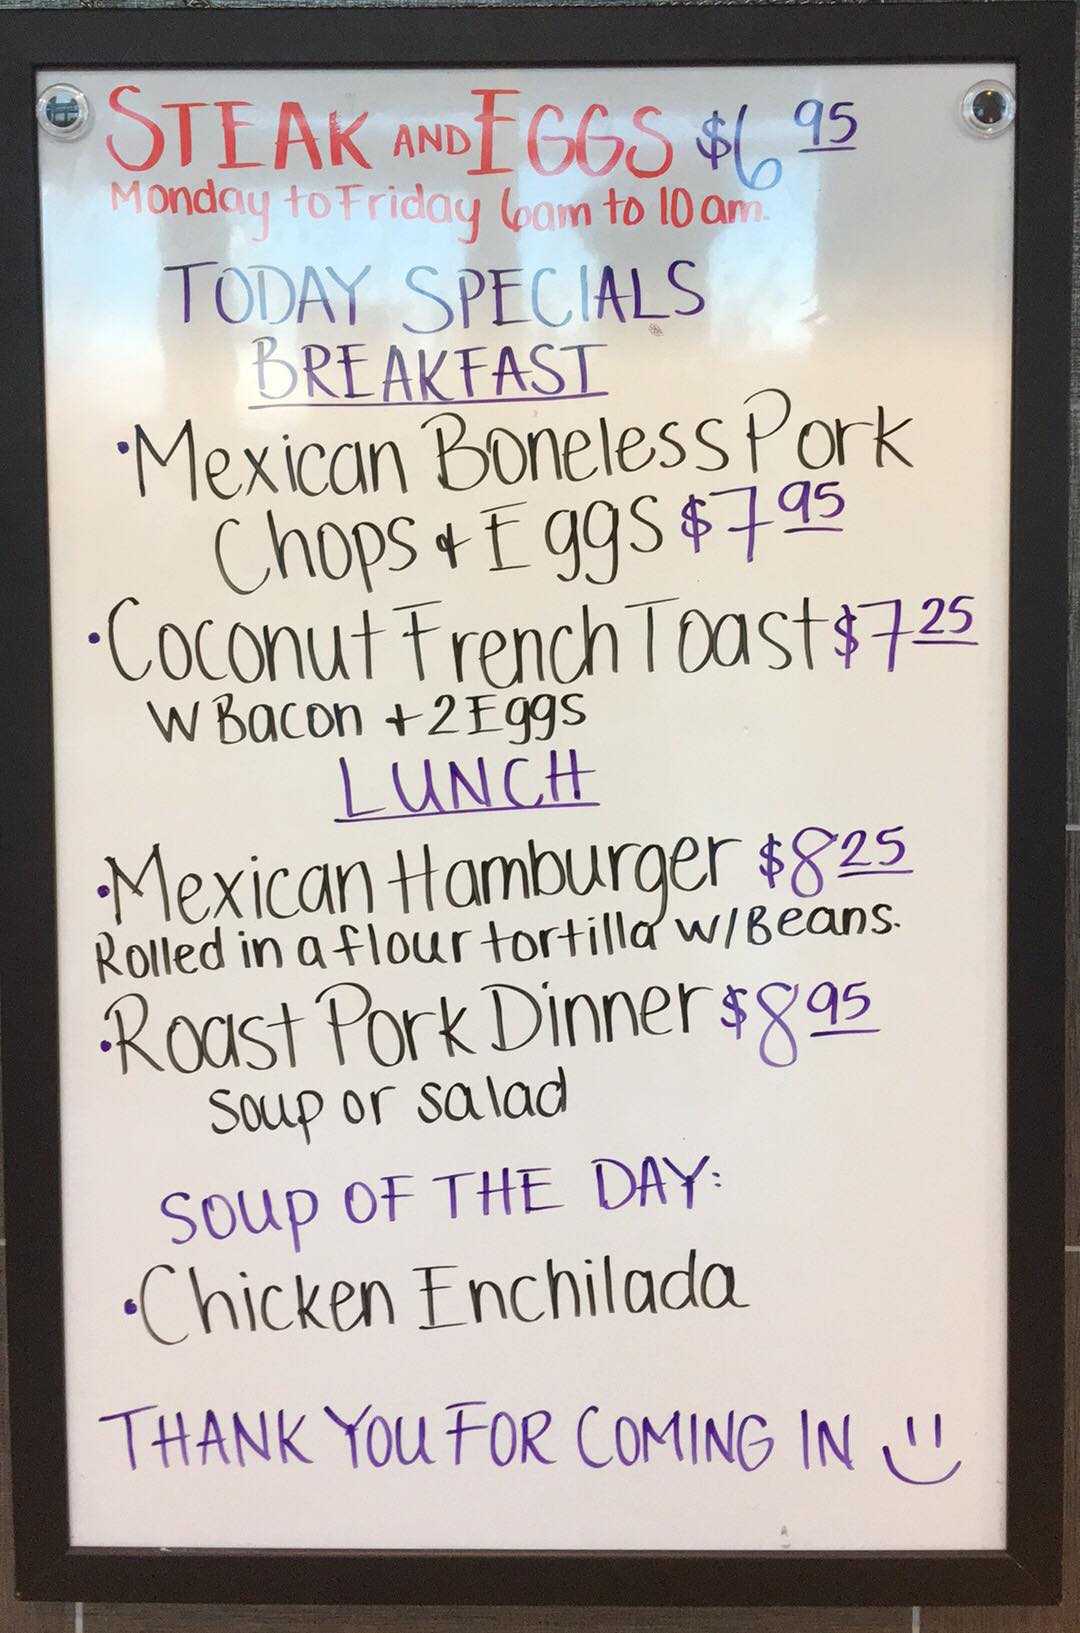 STEAK AND EGGS $6 95
Monday to Friday 6am to 10am.
TODAY SPECIALS
BREAKFAST
• Mexican Boneless Pork
Chops & Eggs $7 95
• Coconut French Toast $7 25
W Bacon + 2 Eggs
LUNCH
• Mexican Hamburger $8 25
Rolled in a flour tortilla w/Beans.
• Roast Pork Dinner $8 95
Soup or salad
SOUP OF THE DAY:
• Chicken Enchilada
THANK YOU FOR COMING IN